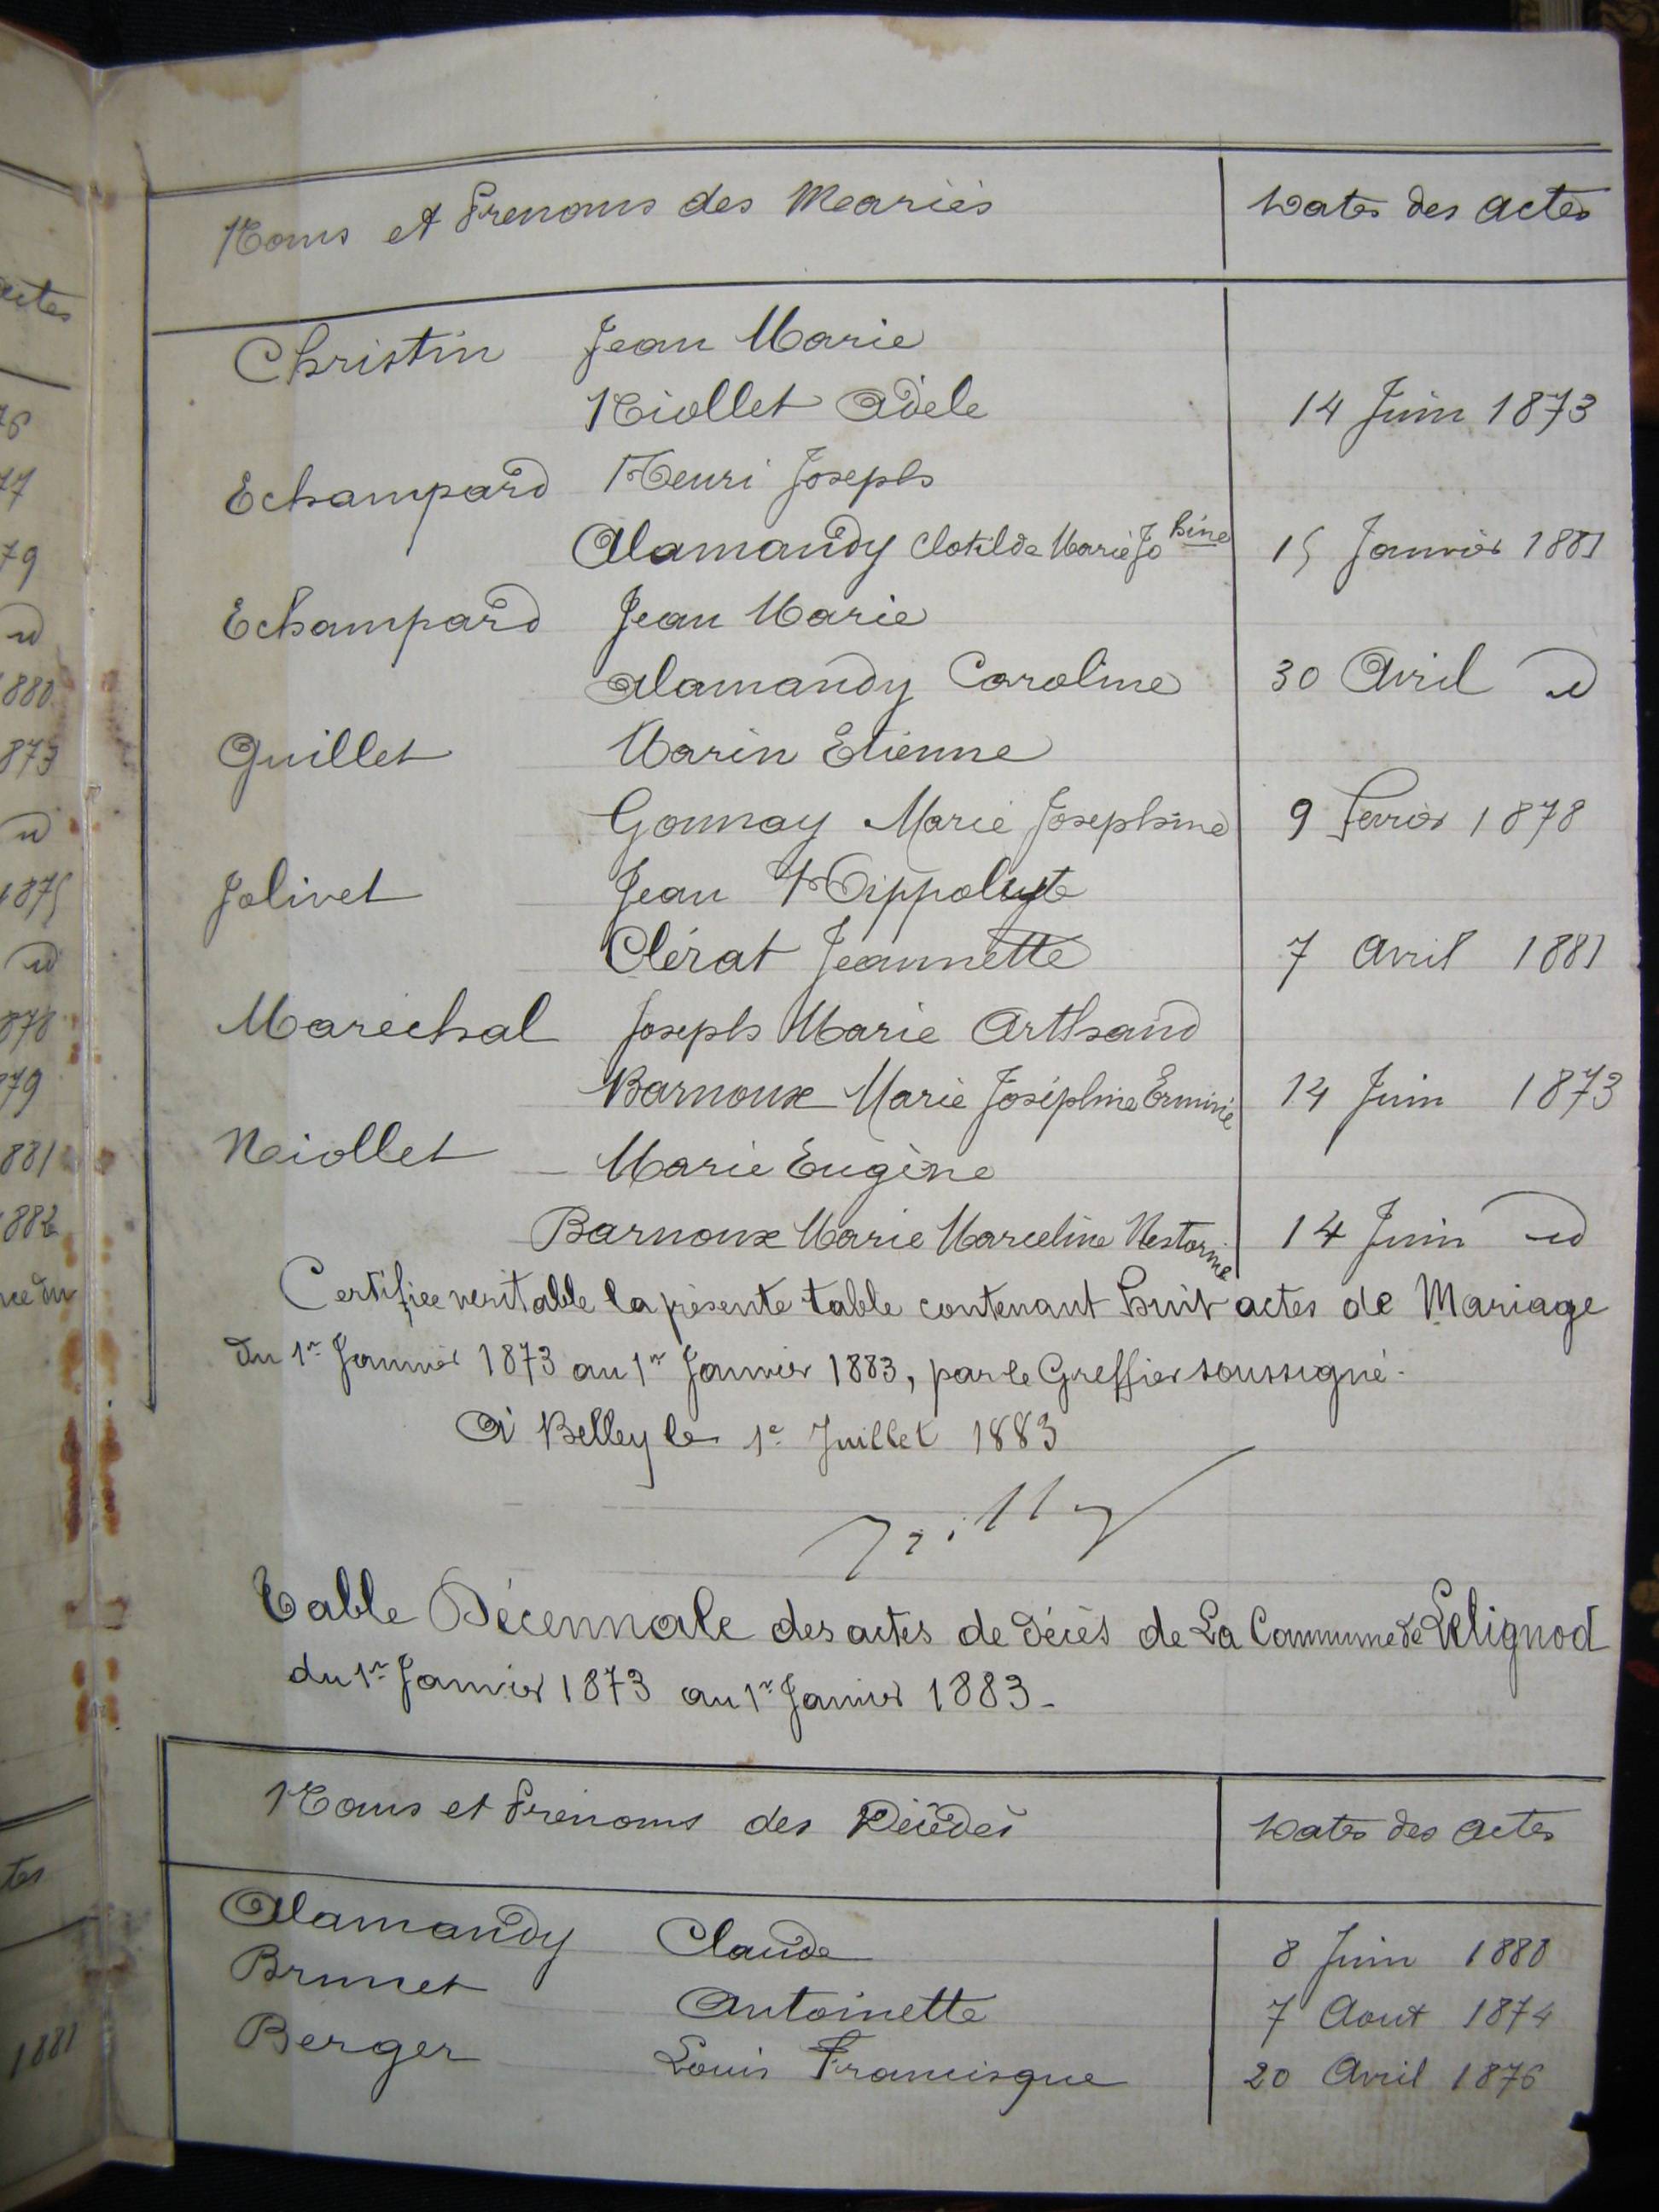 Noms et Prenoms des Mariés Dates des actes
Christin Jean Marie
Niollet Adèle 14 Juin 1873
Echampard Henri Joseph
Alamandy Clotilde Marie Jo hine 15 Janvier 1881
Echampard Jean Marie
Alamandy Caroline 30 Avril d
Guillet Marin Etienne
Gonnay Marie Josephine 9 Fevrier 1878
Jolivet Jean Hippolyte
Clérat Jeannette 7 Avril 1881
Marechal Joseph Marie Arthaud
Barnoux Marie Joséphine Erminie 14 Juin 1873
Neiollet Marie Eugène
Barnoux Marie Marceline Nestorine 14 Juin d
Certifiee veritable la présente table contenant huit actes de Mariage
du 1er Janvier 1873 au 1er Janvier 1883, par le Greffier soussigné.
à Belley le 1e Juillet 1883
Table Décennale des actes de décès de La Commune de Lilignod
du 1er Janvier 1873 au 1er Janvier 1883.
Noms et Prénoms des Décédés Dates des actes
Alamandy Claude 8 Juin 1880
Brunet Antoinette 7 Aout 1874
Berger Louis Francisque 20 Avril 1876
actes
76
77
79
d
1880
1873
d
1875
d
1878
1879
1881
1882
1881